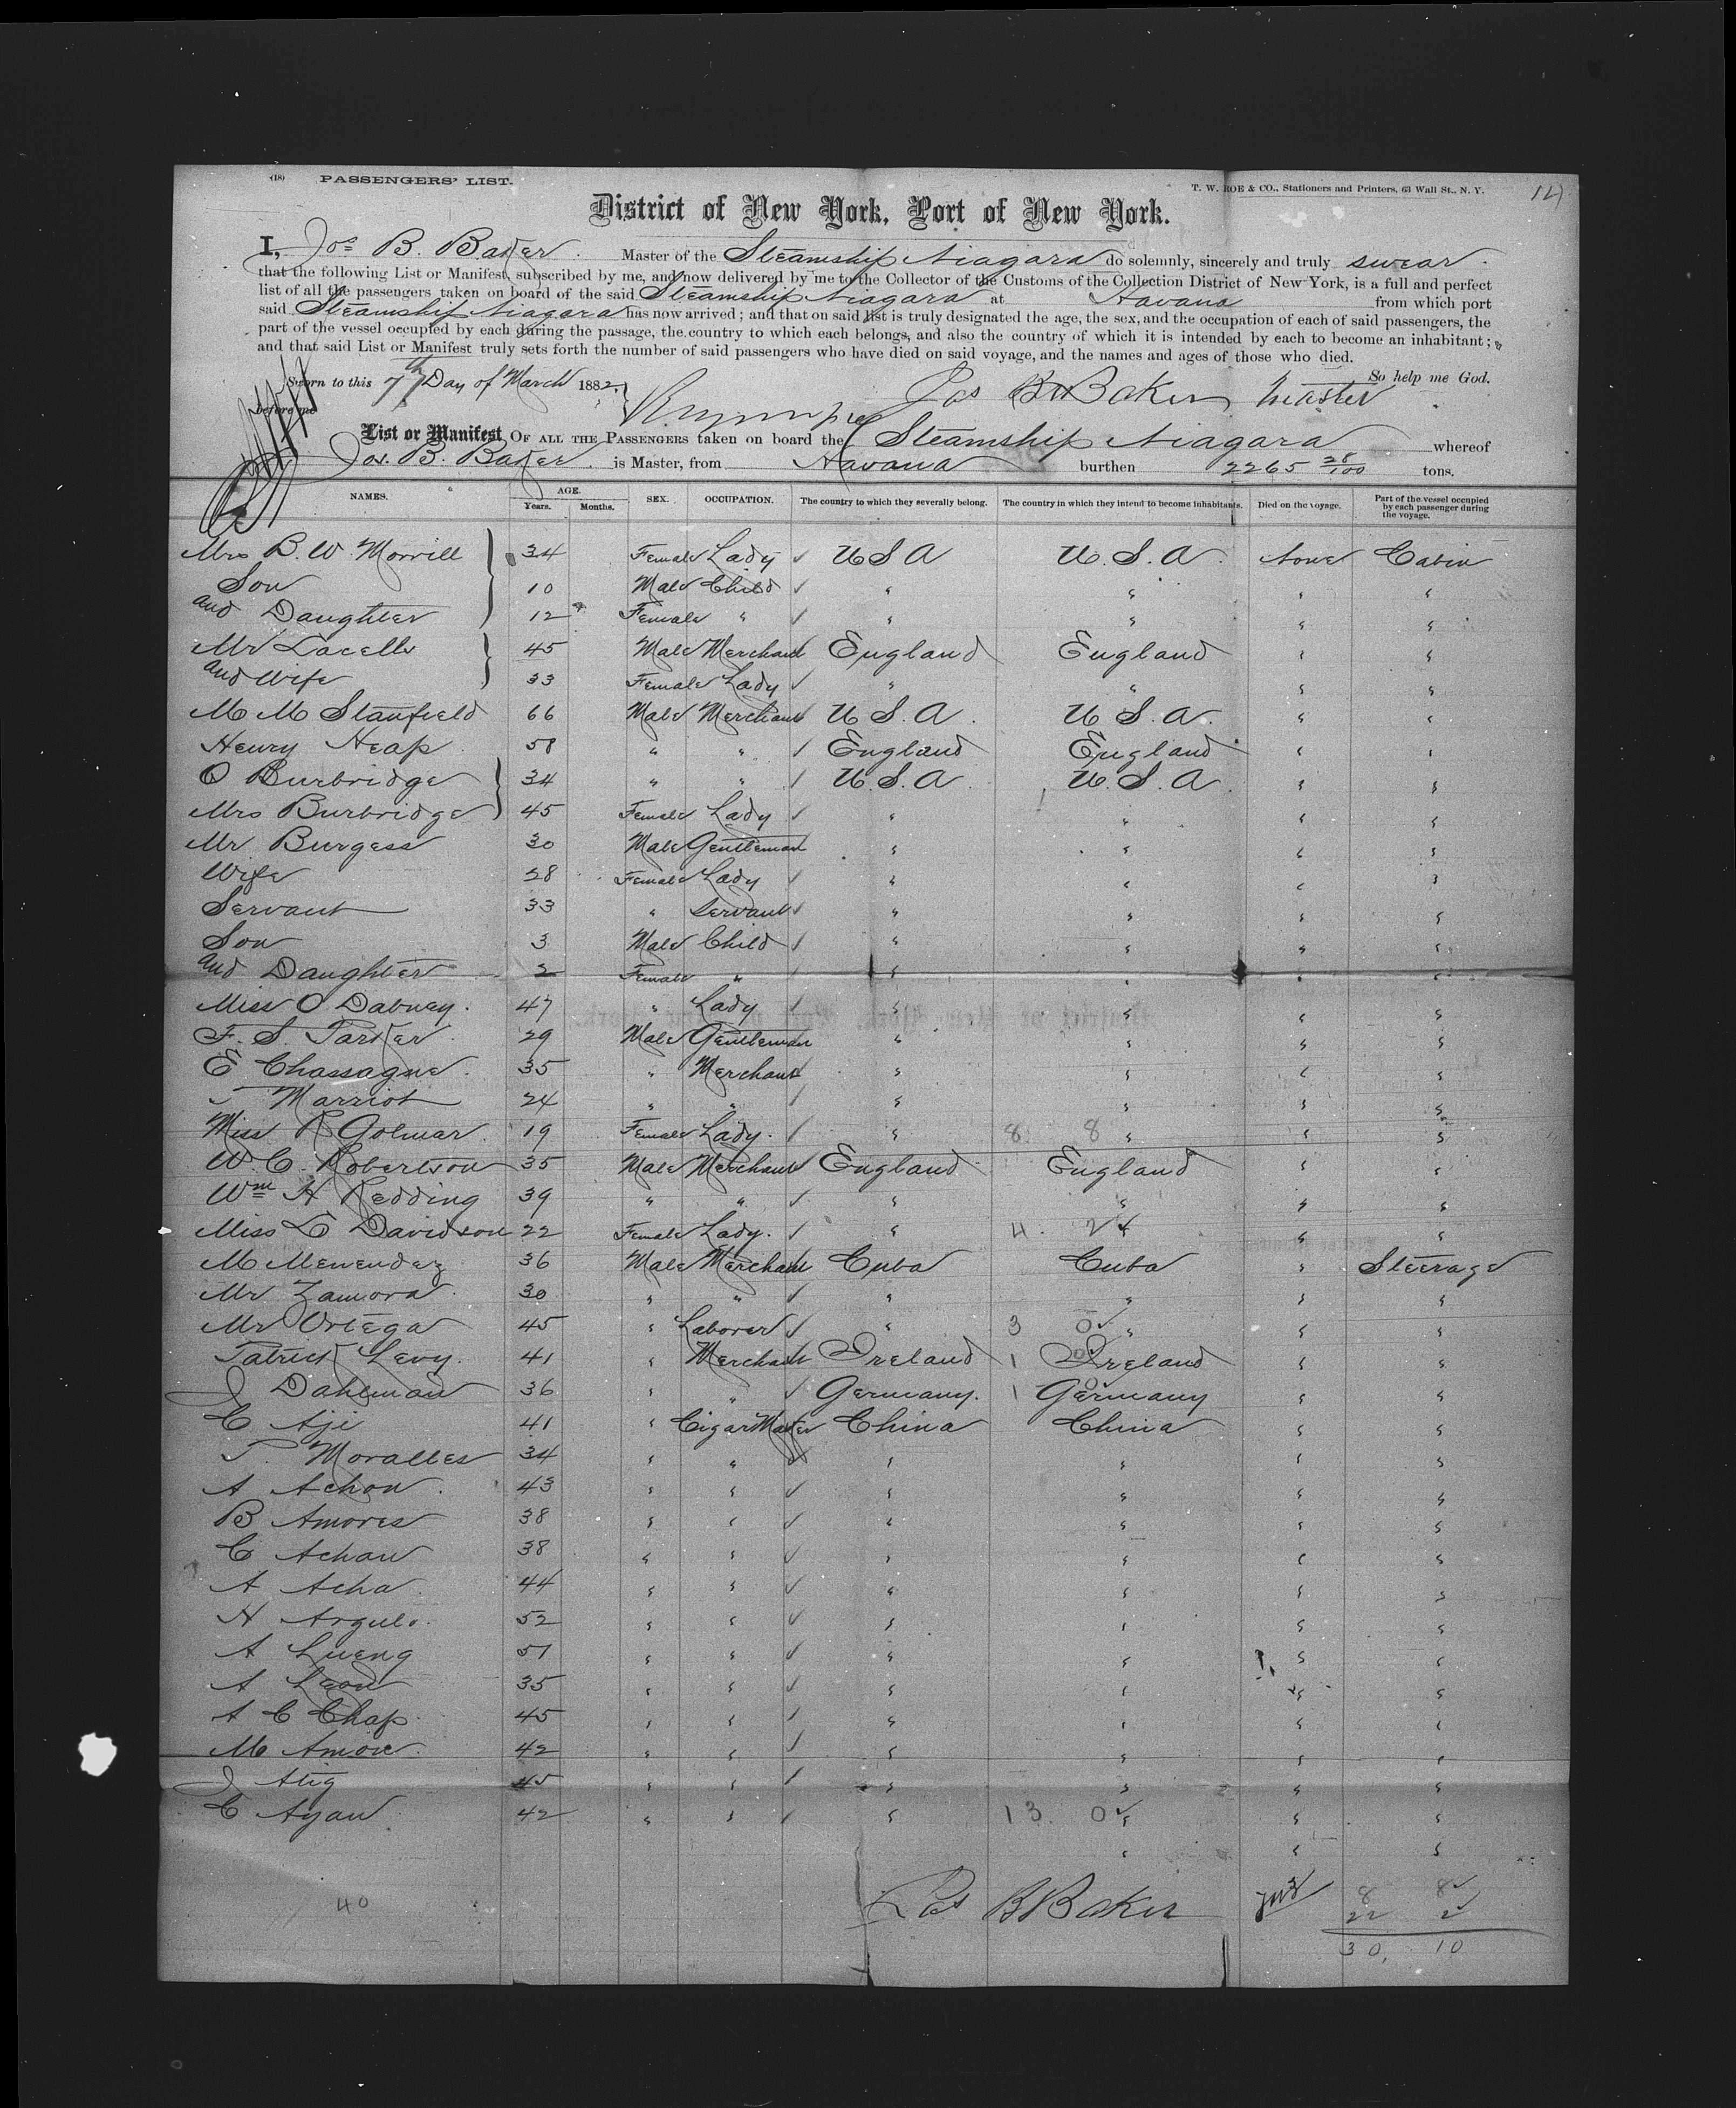 (18) PASSENGERS' LIST. T. W. ROE & CO., Stationers and Printers, 63 Wall St., N. Y.
District of New York, Port of New York.
I, Jos B. Baker. Master of the Steamship Niagara do solemnly, sincerely and truly swear.
that the following List or Manifest, subscribed by me, and now delivered by me to the Collector of the Customs of the Collection District of New-York, is a full and perfect
list of all the passengers taken on board of the said Steamship Niagara at Havana from which port
said Steamship Niagara has now arrived; and that on said list is truly designated the age, the sex, and the occupation of each of said passengers, the
part of the vessel occupied by each during the passage, the country to which each belongs, and also the country of which it is intended by each to become an inhabitant;
and that said List or Manifest truly sets forth the number of said passengers who have died on said voyage, and the names and ages of those who died.
So help me God.
Sworn to this 7th Day of March 1882, Jos B Baker Master
before me
List or Manifest OF ALL THE PASSENGERS taken on board the Steamship Niagara whereof
Jos. B. Baker. is Master, from Havana burthen 2265 28/100 tons.
NAMES. AGE. Years. Months. SEX. OCCUPATION. The country to which they severally belong. The country in which they intend to become inhabitants. Died on the voyage. Part of the vessel occupied by each passenger during the voyage.
Mrs B. W. Morrill 34 Female Lady U S A U. S. A. None Cabin
Son 10 Male Child " " " "
and Daughter 12 Female " " " " "
Mr Lacelle 45 Male Merchant England England " "
and Wife 33 Female Lady " " " "
M M Stanfield 66 Male Merchant U S. A. U S. A. " "
Henry Heap 58 " " England England " "
O Burbridge 34 " " U. S. A. U. S. A. " "
Mrs Burbridge 45 Female Lady " " " "
Mr Burgess 30 Male Gentleman " " " "
Wife 28 Female Lady " " " "
Servant 33 " Servant " " " "
Son 3 Male Child " " " "
and Daughter 2 Female " " " " "
Miss O Dabney. 47 " Lady " " " "
F. S. Parker. 29 Male Gentleman " " " "
E Chassagne. 35 " Merchant " " " "
T Marriot 24 " " " " " "
Miss R Golmar. 19 Female Lady. " 8 8 " " "
W. C. Robertson 35 Male Merchant England England " "
Wm H Redding 39 " " " " " "
Miss L Davidson 22 Female Lady. " 4. 2 " " "
M Menendez 36 Male Merchant Cuba Cuba " Steerage
Mr Zamora. 30 " " " " " "
Mr Ortega 45 " Laborer " 3 0 " " "
Patrick Levy. 41 " Merchant Ireland 1 0 Ireland " "
J Dahlman 36 " " Germany. 1 0 Germany " "
C Aji 41 " Cigar Maker China China " "
P. Moralles 34 " " " " " "
A Achon. 43 " " " " " "
B Amores 38 " " " " " "
C Achan 38 " " " " " "
A Acha 44 " " " " " "
H Argulo. 52 " " " " " "
A Lueng 51 " " " " " "
A Leon 35 " " " " " "
A C Chap 45 " " " " " "
M Amore. 42 " " " " " "
J Atig 45 " " " " " "
C Ayan 42 " " " 13. 0 " " "
" " "
Jos B Baker
40 8 8
22 2
30, 10